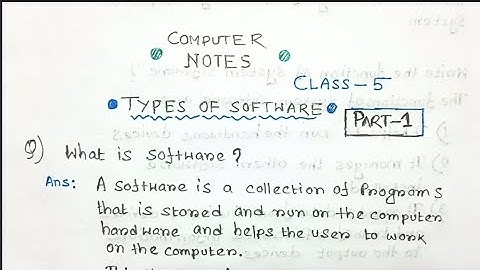 COMPUTER
NOTES
CLASS-5
TYPES OF SOFTWARE
PART-1
Q) What is software?
Ans: A software is a collection of Programs
that is stored and run on the computer
hardware and helps the user to work
on the computer.